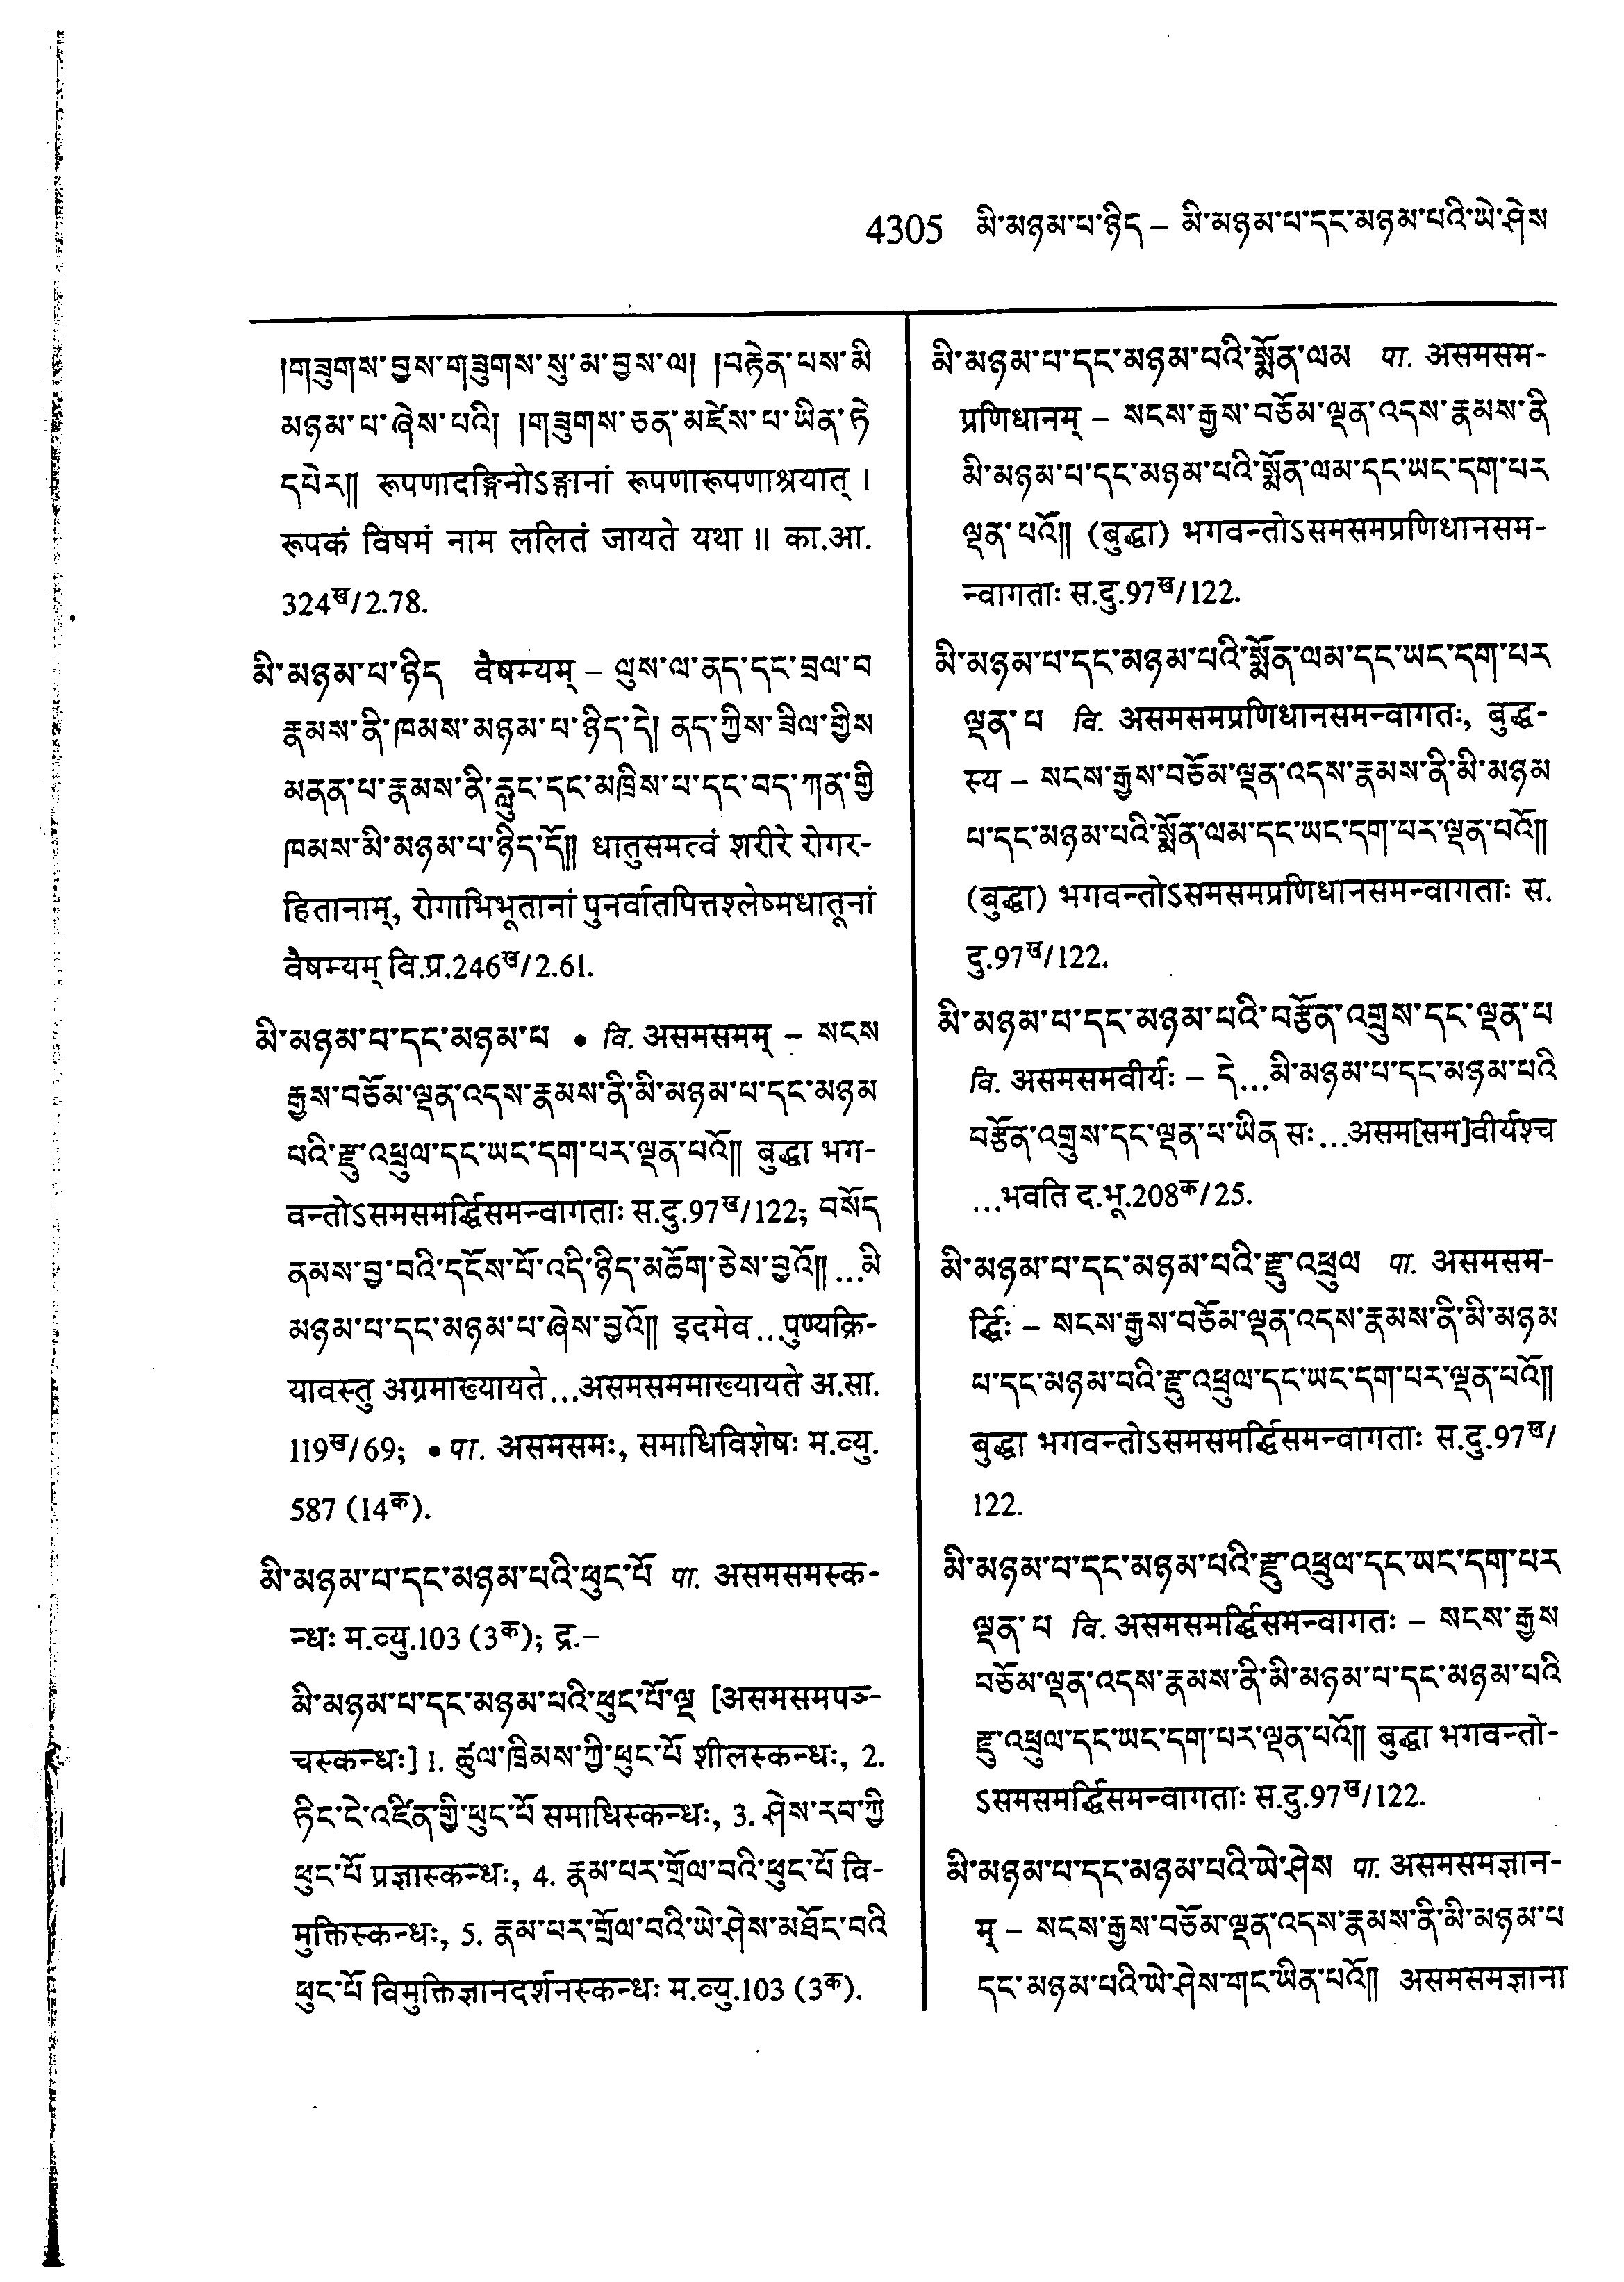 4305 མི་མཉམ་པ་ཉིད – མི་མཉམ་པ་དང་མཉམ་པའི་ཡེ་ཤེས
།གཟུགས་བྱས་གཟུགས་སུ་མ་བྱས་ལ། །བརྟེན་པས་མི
མཉམ་པ་ཞེས་པའི། །གཟུགས་ཅན་མཛེས་པ་ཡིན་ཏེ
དཔེར༎ रूपणादङ्गिनोऽङ्गानां रूपणारूपणाश्रयात् ।
रूपकं विषमं नाम ललितं जायते यथा ॥ का.आ.
324ख/2.78.
མི་མཉམ་པ་ཉིད वैषम्यम् – ལུས་ལ་ནད་དང་བྲལ་བ
རྣམས་ནི་ཁམས་མཉམ་པ་ཉིད་དེ། ནད་ཀྱིས་ཟིལ་གྱིས
མནན་པ་རྣམས་ནི་རླུང་དང་མཁྲིས་པ་དང་བད་ཀན་གྱི
ཁམས་མི་མཉམ་པ་ཉིད་དོ༎ धातुसमत्वं शरीरे रोगर-
हितानाम्, रोगाभिभूतानां पुनर्वातपित्तश्लेष्मधातूनां
वैषम्यम् वि.प्र.246ख/2.61.
མི་མཉམ་པ་དང་མཉམ་པ • वि. असमसमम् – སངས
རྒྱས་བཅོམ་ལྡན་འདས་རྣམས་ནི་མི་མཉམ་པ་དང་མཉམ
པའི་རྫུ་འཕྲུལ་དང་ཡང་དག་པར་ལྡན་པའོ༎ बुद्धा भग-
वन्तोऽसमसमर्द्धिसमन्वागताः स.दु.97ख/122; བསོད
ནམས་བྱ་བའི་དངོས་པོ་འདི་ཉིད་མཆོག་ཅེས་བྱའོ༎...མི
མཉམ་པ་དང་མཉམ་པ་ཞེས་བྱའོ༎ इदमेव...पुण्यक्रि-
यावस्तु अग्रमाख्यायते...असमसममाख्यायते अ.सा.
119ख/69; • पा. असमसमः, समाधिविशेषः म.व्यु.
587 (14क).
མི་མཉམ་པ་དང་མཉམ་པའི་ཕུང་པོ पा. असमसमस्क-
न्धः म.व्यु.103 (3क); द्र.–
མི་མཉམ་པ་དང་མཉམ་པའི་ཕུང་པོ་ལྔ [असमसमपञ-
चस्कन्धः] 1. ཚུལ་ཁྲིམས་ཀྱི་ཕུང་པོ शीलस्कन्धः, 2.
ཏིང་ངེ་འཛིན་གྱི་ཕུང་པོ समाधिस्कन्धः, 3. ཤེས་རབ་ཀྱི
ཕུང་པོ प्रज्ञास्कन्धः, 4. རྣམ་པར་གྲོལ་བའི་ཕུང་པོ वि-
मुक्तिस्कन्धः, 5. རྣམ་པར་གྲོལ་བའི་ཡེ་ཤེས་མཐོང་བའི
ཕུང་པོ विमुक्तिज्ञानदर्शनस्कन्धः म.व्यु.103 (3क).
མི་མཉམ་པ་དང་མཉམ་པའི་སྨོན་ལམ पा. असमसम-
प्रणिधानम् – སངས་རྒྱས་བཅོམ་ལྡན་འདས་རྣམས་ནི
མི་མཉམ་པ་དང་མཉམ་པའི་སྨོན་ལམ་དང་ཡང་དག་པར
ལྡན་པའོ༎ (बुद्धा) भगवन्तोऽसमसमप्रणिधानसम-
न्वागताः स.दु.97ख/122.
མི་མཉམ་པ་དང་མཉམ་པའི་སྨོན་ལམ་དང་ཡང་དག་པར
ལྡན་པ वि. असमसमप्रणिधानसमन्वागतः, बुद्ध-
स्य – སངས་རྒྱས་བཅོམ་ལྡན་འདས་རྣམས་ནི་མི་མཉམ
པ་དང་མཉམ་པའི་སྨོན་ལམ་དང་ཡང་དག་པར་ལྡན་པའོ༎
(बुद्धा) भगवन्तोऽसमसमप्रणिधानसमन्वागताः स.
दु.97ख/122.
མི་མཉམ་པ་དང་མཉམ་པའི་བརྩོན་འགྲུས་དང་ལྡན་པ
वि. असमसमवीर्यः – དེ...མི་མཉམ་པ་དང་མཉམ་པའི
བརྩོན་འགྲུས་དང་ལྡན་པ་ཡིན सः...असम[सम]वीर्यश्च
...भवति द.भू.208क/25.
མི་མཉམ་པ་དང་མཉམ་པའི་རྫུ་འཕྲུལ पा. असमसम-
र्द्धिः – སངས་རྒྱས་བཅོམ་ལྡན་འདས་རྣམས་ནི་མི་མཉམ
པ་དང་མཉམ་པའི་རྫུ་འཕྲུལ་དང་ཡང་དག་པར་ལྡན་པའོ༎
बुद्धा भगवन्तोऽसमसमर्द्धिसमन्वागताः स.दु.97ख/
122.
མི་མཉམ་པ་དང་མཉམ་པའི་རྫུ་འཕྲུལ་དང་ཡང་དག་པར
ལྡན་པ वि. असमसमर्द्धिसमन्वागतः – སངས་རྒྱས
བཅོམ་ལྡན་འདས་རྣམས་ནི་མི་མཉམ་པ་དང་མཉམ་པའི
རྫུ་འཕྲུལ་དང་ཡང་དག་པར་ལྡན་པའོ༎ बुद्धा भगवन्तो-
ऽसमसमर्द्धिसमन्वागताः स.दु.97ख/122.
མི་མཉམ་པ་དང་མཉམ་པའི་ཡེ་ཤེས पा. असमसमज्ञान-
म् – སངས་རྒྱས་བཅོམ་ལྡན་འདས་རྣམས་ནི་མི་མཉམ་པ
དང་མཉམ་པའི་ཡེ་ཤེས་གང་ཡིན་པའོ༎ असमसमज्ञाना